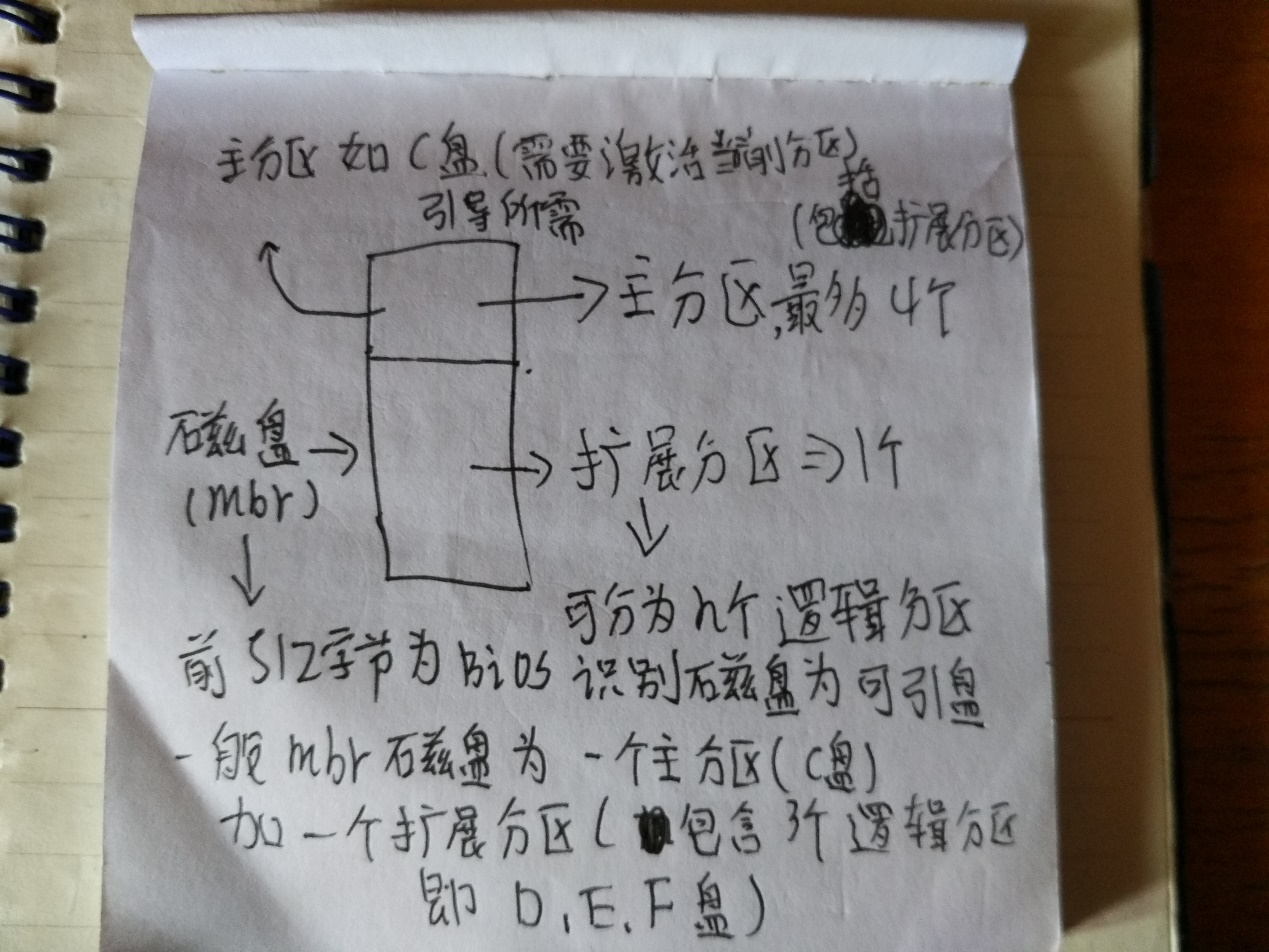 主分区如C盘(需要激活当前分区)
引导所需
括
(包扩展分区)
主分区,最多4个
磁盘
(mbr)
扩展分区⇒1个
可分为n个逻辑分区
前512字节为BiOS识别磁盘为可引盘
一般mbr磁盘为一个主分区(C盘)
加一个扩展分区(包含3个逻辑分区
即D,E,F盘)